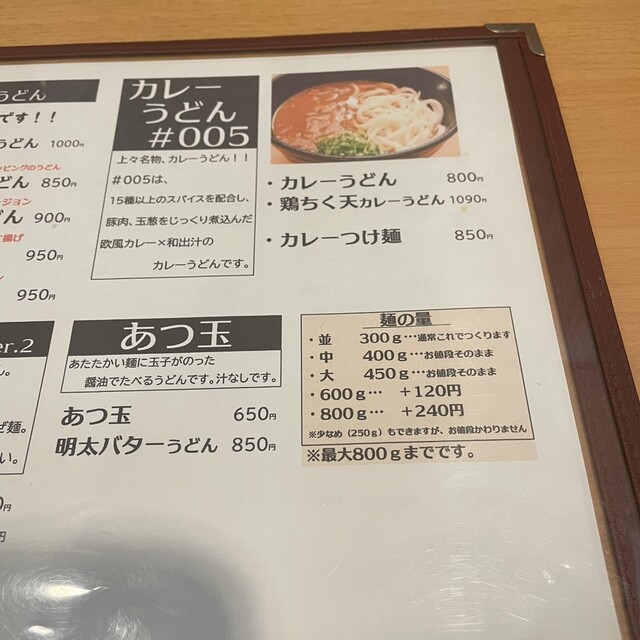 うどん
です！！
うどん 1000円
ッピングのうどん
どん 850円
ージョン
どん 900円
す揚げ
950円
950円
カレー
うどん
＃005
上々名物、カレーうどん！！
＃005は、
15種以上のスパイスを配合し、
豚肉、玉葱をじっくり煮込んだ
欧風カレー×和出汁の
カレーうどんです。
・カレーうどん 800円
・鶏ちく天カレーうどん 1090円
・カレーつけ麺 850円
er.2
ん。
ぜ麺。
い。
0円
円
あつ玉
あたたかい麺に玉子がのった
醤油でたべるうどんです。汁なしです。
あつ玉 650円
明太バターうどん 850円
麺の量
・並 300ｇ…通常これでつくります
・中 400ｇ…お値段そのまま
・大 450ｇ…お値段そのまま
・600ｇ… ＋120円
・800ｇ… ＋240円
※少なめ（250ｇ）もできますが、お値段かわりません
※最大800ｇまでです。